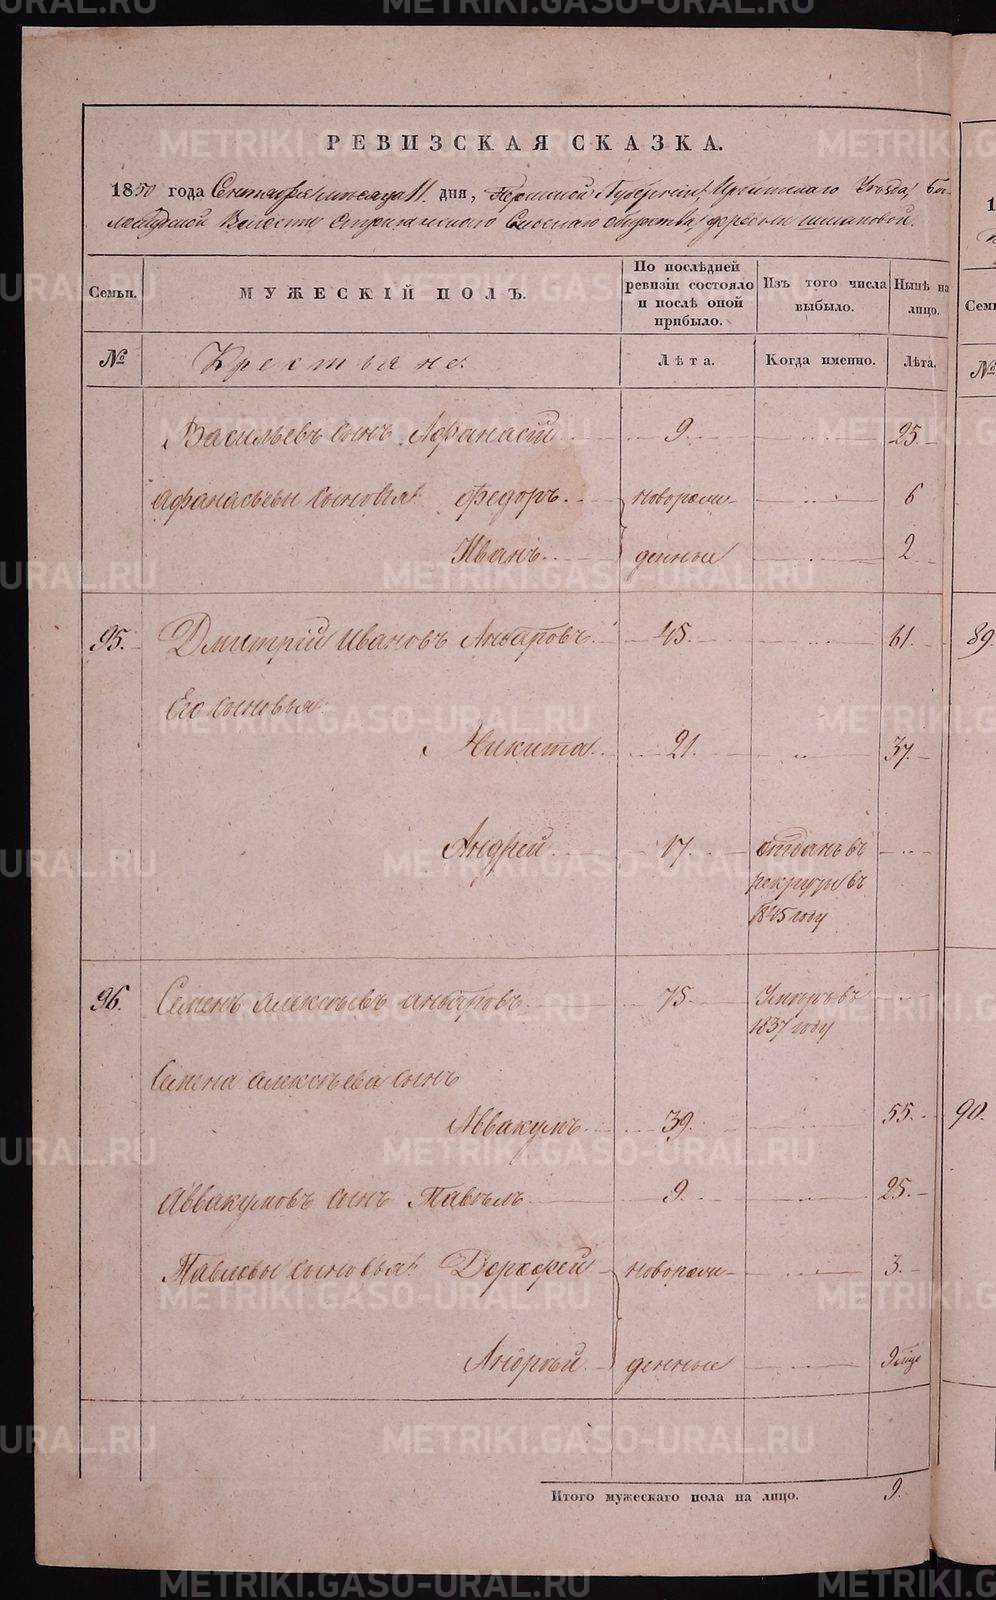 РЕВИЗСКАЯ СКАЗКА.
1850 года Сентября месяца 11 дня, Пермской Губерніи, Ирбитскаго Уѣзда,
Волости Сельскаго общества, деревни
Семьи.
МУЖЕСКІЙ ПОЛЪ.
По послѣдней ревизіи состояло и послѣ оной прибыло.
Изъ того числа выбыло.
Нынѣ на лицо.
№
Крестьяне.
Лѣта.
Когда именно.
Лѣта.
Васильевъ сынъ Афанасій 9. 25.
Афанасьевы сыновья: Федоръ. новорож- 6
Иванъ. денные 2
95. Дмитрій Ивановъ Анбаровъ. 45. 61.
Его сыновья:
Никита. 21. 37.
Андрей 17 отданъ въ
рекруты въ
1845 году
96. Семенъ Алексѣевъ Анбаровъ 75 Умеръ въ
1837 году
Семена Алексѣева сынъ
Аввакумъ 39. 55.
Аввакумовъ сынъ Павелъ 9. 25.
Павловы сыновья: Дорофей новорож- 3.
Андрей денные 9 мѣс
Итого мужескаго пола на лицо. 9.
1
Семьи
№
89.
90.
METRIKI.GASO-URAL.RU